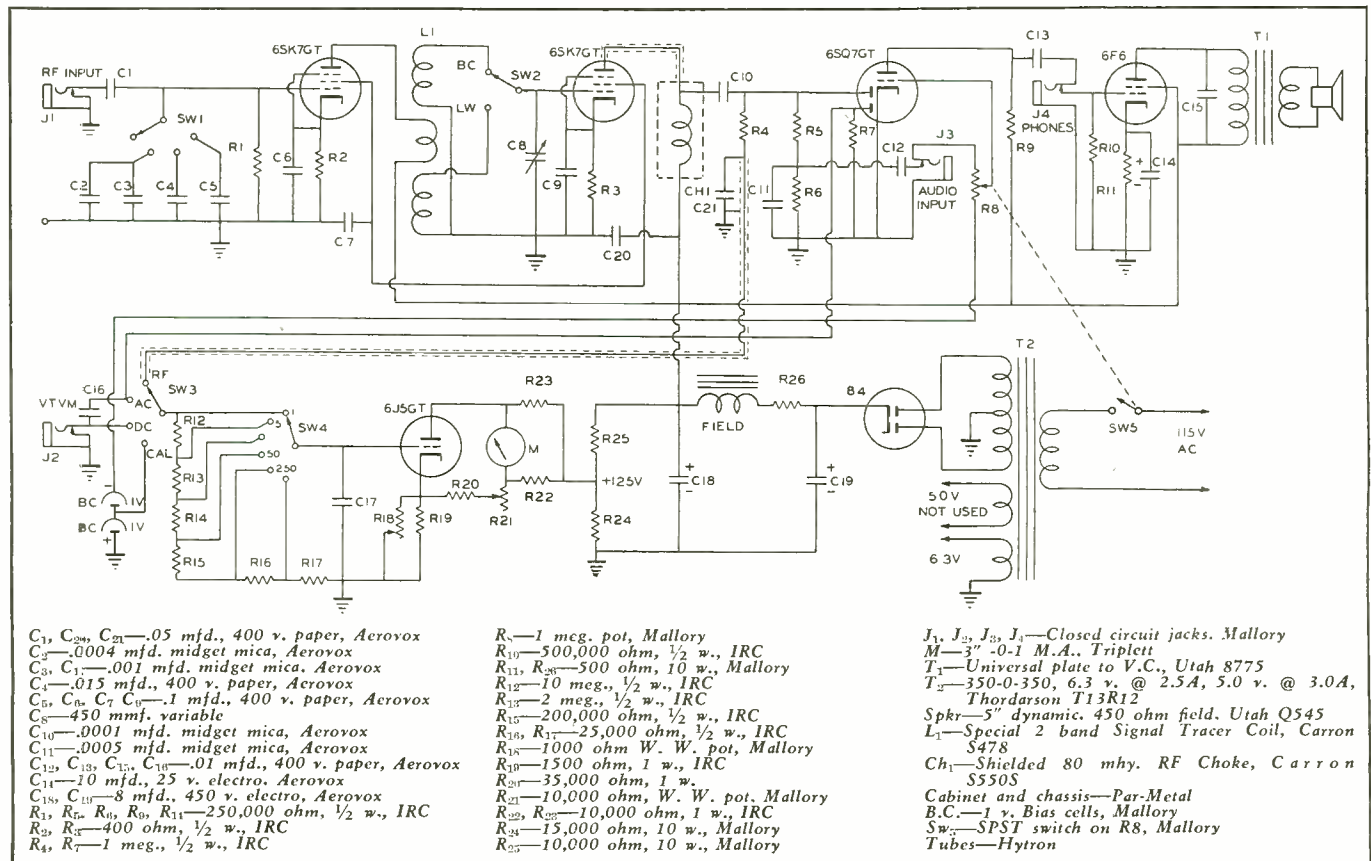 RF INPUT
J1
C1
SW1
C2
C3
C4
C5
R1
C6
6SK7GT
R2
C7
L1
BC
SW2
LW
C8
6SK7GT
C9
R3
C20
C10
R4
CH1
C21
R5
C11
R6
6SQ7GT
R7
C12
J3
AUDIO
INPUT
R8
R9
C13
J4
PHONES
6F6
R10
R11
+
-
C14
C15
T1
VTVM
J2
C16
RF
SW3
AC
DC
CAL
-
BC
1V
BC
1V
+
R12
R13
R14
R15
R16
R17
1
5
50
250
SW4
C17
6J5GT
R18
R19
R20
R21
R22
R23
M
R25
+125V
R24
FIELD
R26
+
C18
-
+
C19
-
84
T2
5.0V
NOT USED
6.3V
SW5
115V
AC
C₁, C₂₀, C₂₁—.05 mfd., 400 v. paper, Aerovox
C₂—.0004 mfd. midget mica, Aerovox
C₃, C₁₇—.001 mfd. midget mica, Aerovox
C₄—.015 mfd., 400 v. paper, Aerovox
C₅, C₆, C₇ C₉—.1 mfd., 400 v. paper, Aerovox
C₈—450 mmf. variable
C₁₀—.0001 mfd. midget mica, Aerovox
C₁₁—.0005 mfd. midget mica, Aerovox
C₁₂, C₁₃, C₁₅, C₁₆—.01 mfd., 400 v. paper, Aerovox
C₁₄—10 mfd., 25 v. electro. Aerovox
C₁₈, C₁₉—8 mfd., 450 v. electro, Aerovox
R₁, R₅, R₆, R₉, R₁₄—250,000 ohm, ½ w., IRC
R₂, R₃—400 ohm, ½ w., IRC
R₄, R₇—1 meg., ½ w., IRC
R₈—1 meg. pot, Mallory
R₁₀—500,000 ohm, ½ w., IRC
R₁₁, R₂₆—500 ohm, 10 w., Mallory
R₁₂—10 meg., ½ w., IRC
R₁₃—2 meg., ½ w., IRC
R₁₅—200,000 ohm, ½ w., IRC
R₁₆, R₁₇—25,000 ohm, ½ w., IRC
R₁₈—1000 ohm W. W. pot, Mallory
R₁₉—1500 ohm, 1 w., IRC
R₂₀—35,000 ohm, 1 w.
R₂₁—10,000 ohm, W. W. pot, Mallory
R₂₂, R₂₃—10,000 ohm, 1 w., IRC
R₂₄—15,000 ohm, 10 w., Mallory
R₂₅—10,000 ohm, 10 w., Mallory
J₁, J₂, J₃, J₄—Closed circuit jacks. Mallory
M—3" -0-1 M.A., Triplett
T₁—Universal plate to V.C., Utah 8775
T₂—350-0-350, 6.3 v. @ 2.5A, 5.0 v. @ 3.0A,
Thordarson T13R12
Spkr—5" dynamic. 450 ohm field. Utah Q545
L₁—Special 2 band Signal Tracer Coil, Carron
S478
Ch₁—Shielded 80 mhy. RF Choke, Carron
S550S
Cabinet and chassis—Par-Metal
B.C.—1 v. Bias cells, Mallory
Sw₅—SPST switch on R8, Mallory
Tubes—Hytron